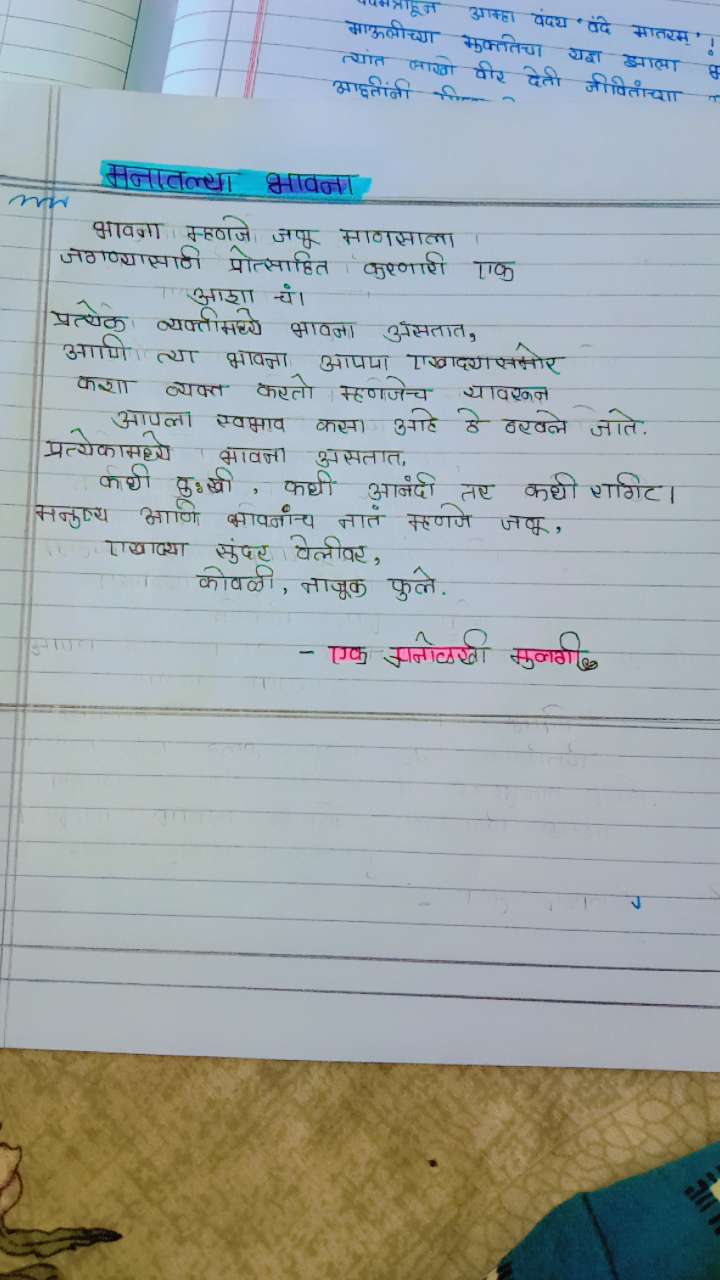 आम्हा वंद्य 'वंदे मातरम्'!
माऊलीच्या मुक्ततेचा यज्ञ झाला
त्यांत लाखो वीर देती जीवितांच्या
आहुतींनी
मनातल्या भावना
भावना म्हणजे जणू माणसाला
जगण्यासाठी प्रोत्साहित करणारी एक
आशा चं।
प्रत्येक व्यक्तीमध्ये भावना असतात,
आणि त्या भावना आपण एखाद्यासमोर
कशा व्यक्त करतो म्हणजेच यावरून
आपला स्वभाव कसा आहे हे ठरवले जाते.
प्रत्येकामध्ये भावना असतात,
कधी दुःखी, कधी आनंदी तर कधी रागिट।
मनुष्य आणि भावनांच नातं म्हणजे जणू,
एखाद्या सुंदर वेलीवर,
कोवळी, नाजूक फुले.
- एक अनोळखी मुलगी